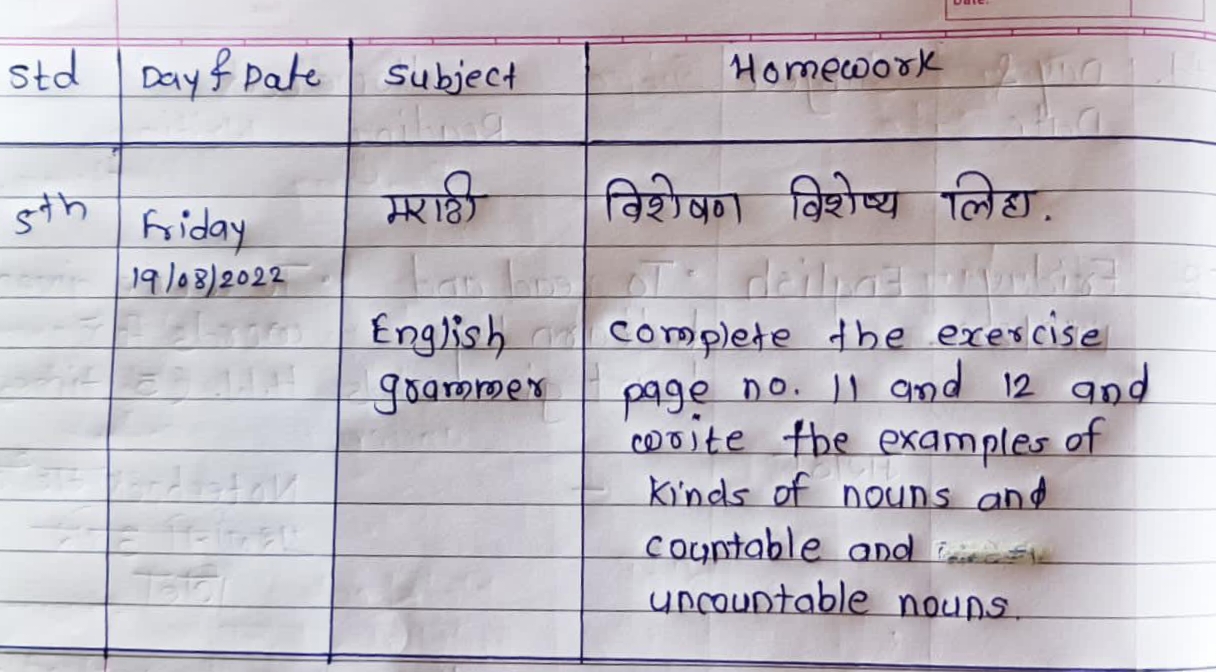 Date:
Std Day & Date Subject Homework
5th Friday मराठी विशेषण विशेष्य लिहा.
19/08/2022
English complete the exercise
grammer page no. 11 and 12 and
write the examples of
kinds of nouns and
countable and
uncountable nouns.